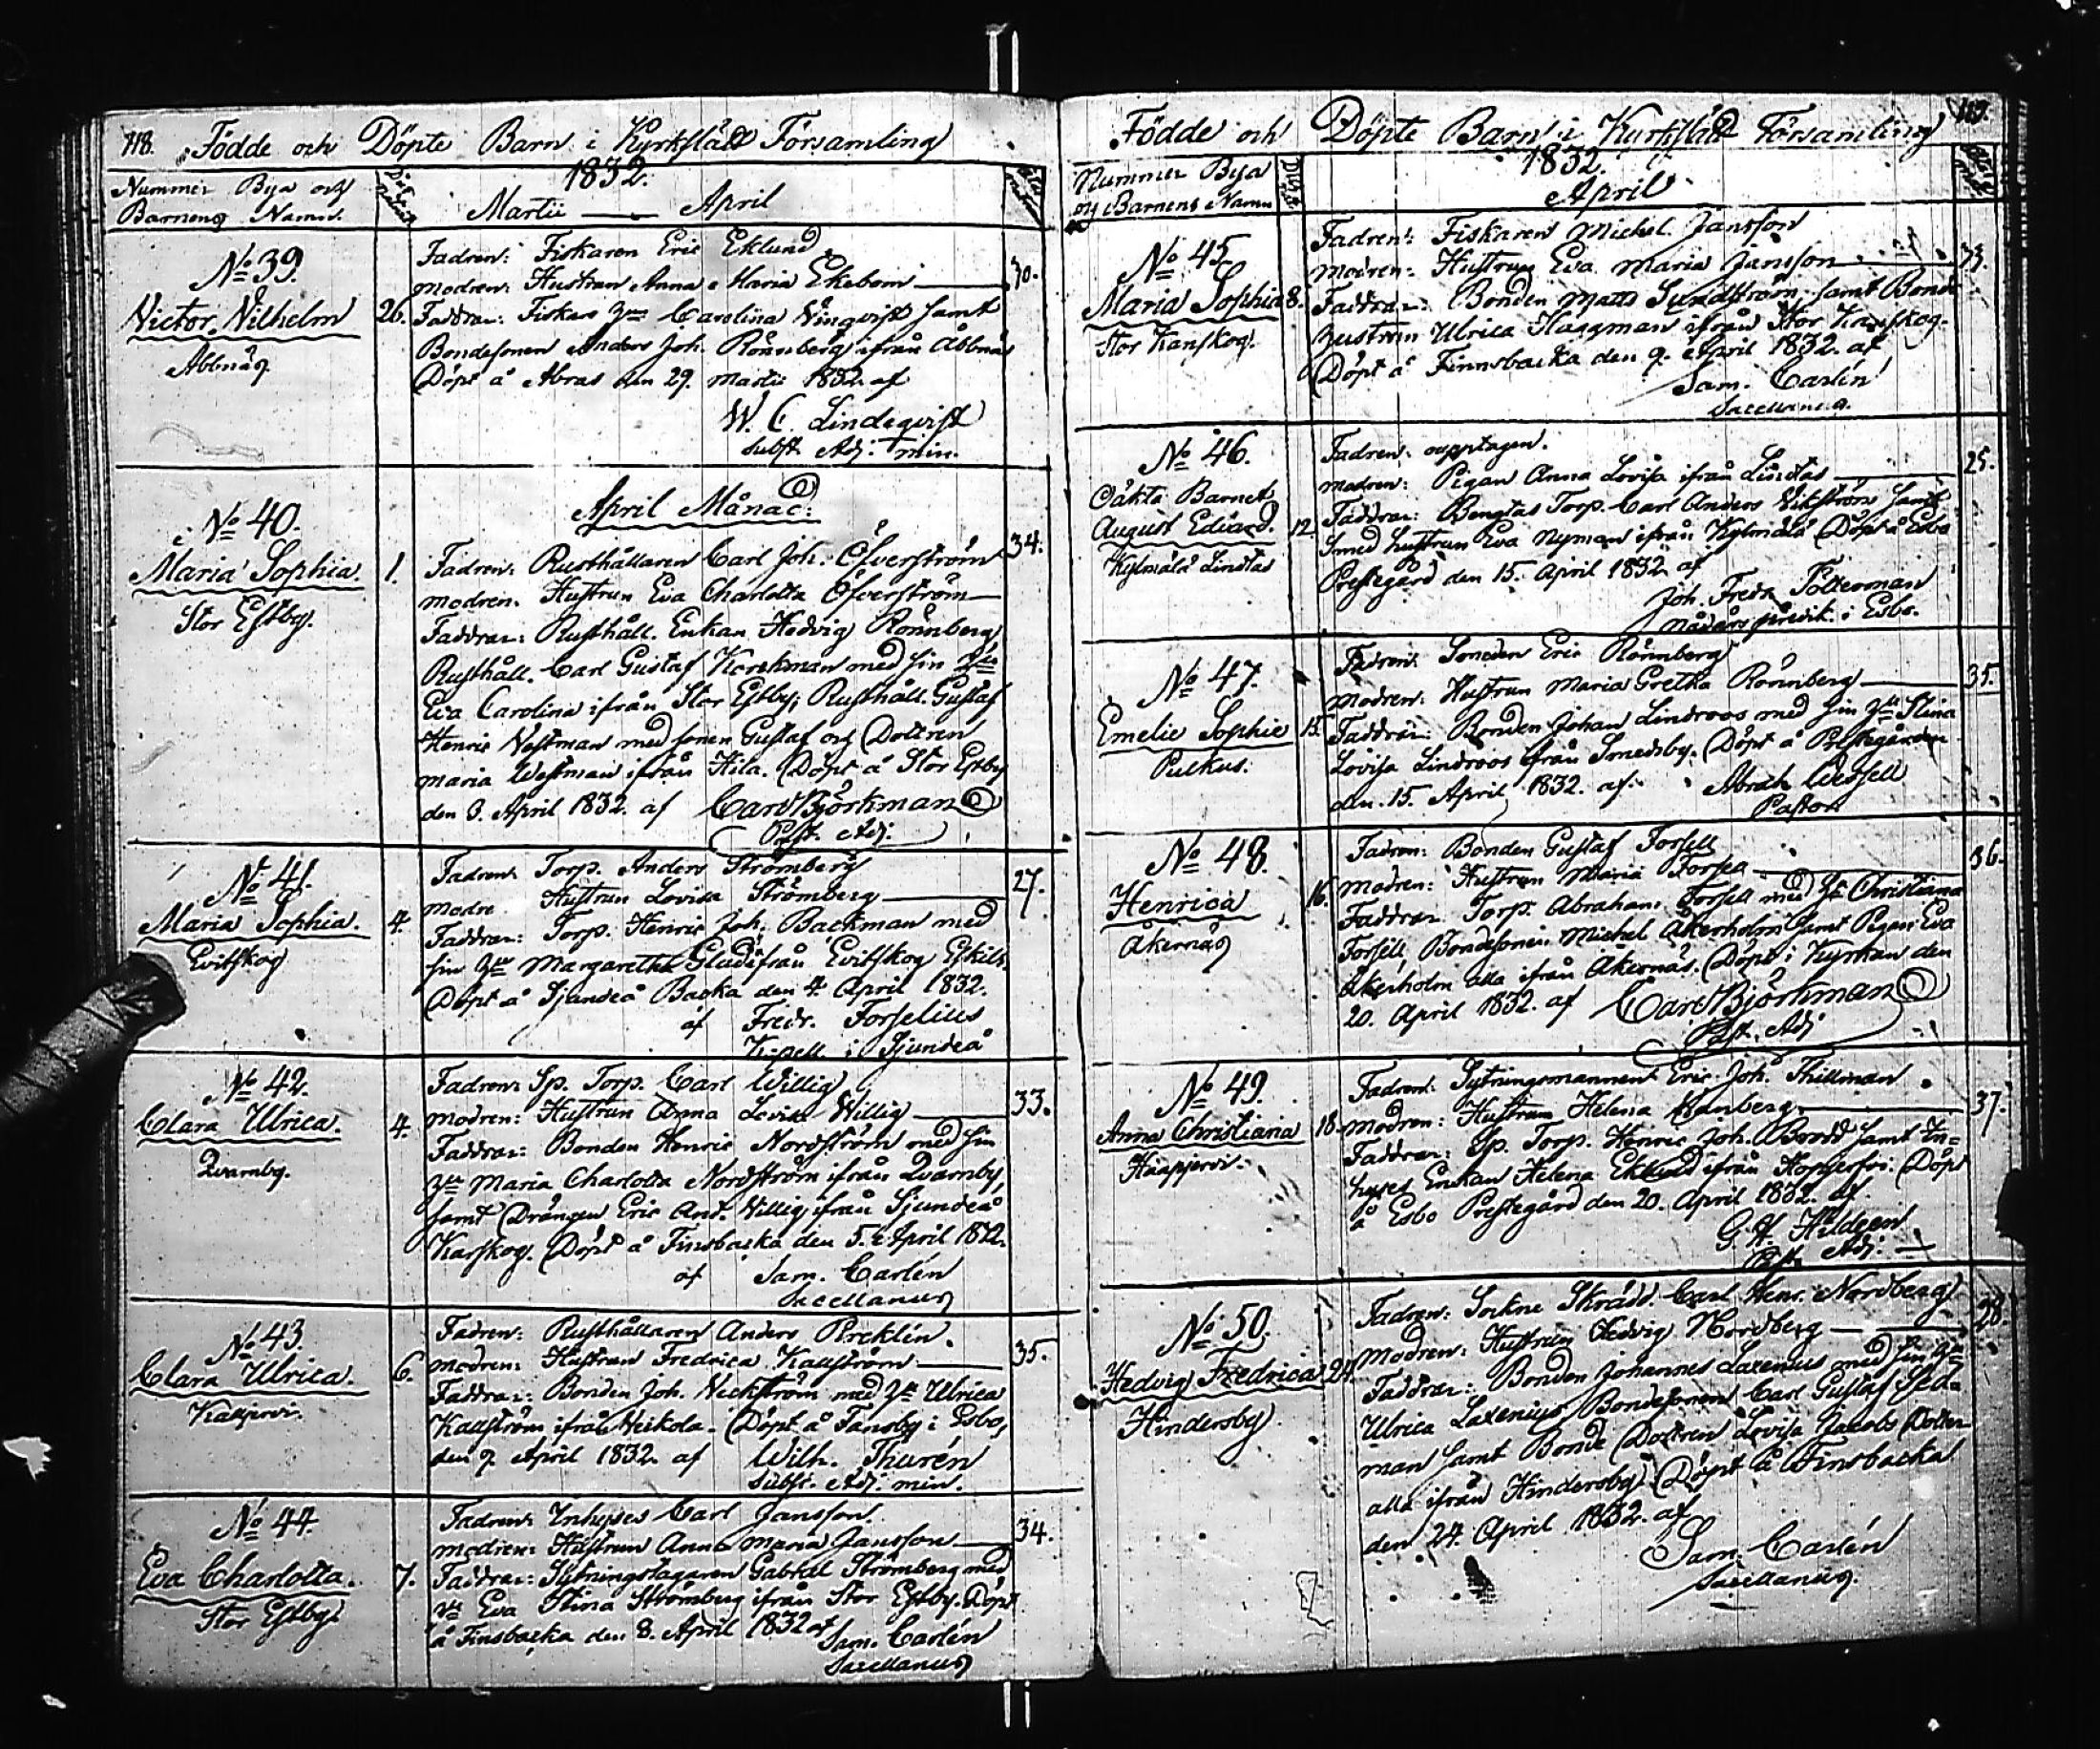 118. Födde och Döpte Barn i Kyrkslätt Församling
1832.
Nummer Bya och
Barnens Namn.
Martii — April
No 39.
Victor Wilhelm
Abbnäs
26.
Fadren: Fiskaren Eric Eklund
modren: Hustrun Anna Maria Ekebom — 30.
Faddrar: Fiskars Carolina samt
Bondesonen Anders Joh. Rönnberg ifrån Abbnäs
Döpt å den 29. Martii 1832 af
W. C. Lindeqvist
subst. Adj. min.
April Månad:
No 40.
Maria Sophia.
Stor Estby.
1.
34.
Fadren: Rusthållaren Carl Joh. Öfverström
modren: Hustrun Eva Charlotta Öfverström —
Faddrar: Rusthåll. Enkan Hedvig Rönnberg
Rusthåll. Carl Gustaf med sin
Eva Carolina ifrån Stor Estby; Rusthåll. Gustaf
Henric Westman med sonen Gustaf och Dottren
Maria Westman ifrån Hila. Döpt å Stor Estby
den 3. April 1832. af Carl Björkman
Pst. Adj.
No 41.
Maria Sophia.
Evitskog
4.
27.
Fadren: Torp. Anders Strömberg
modre Hustrun Lovisa Strömberg —
Faddrar: Torp. Henric Joh. Backman med
sin Margaretha ifrån Evitskog
Döpt å Sjundeå Backa den 4. April 1832.
af Fredr. Forselius
Kapell. i Sjundeå
No 42.
Clara Ulrica.
Qvarnby.
4.
33.
Fadren: Sp. Torp. Carl Willig
modren: Hustrun Anna Lovisa Willig —
Faddrar: Bonden Henric Nordström med sin
Maria Charlotta Nordström ifrån Qvarnby,
samt Drängen Eric Ant. Willig ifrån Sjundeå
Karskog. Döpt å Finsbacka den 5. April 1832.
af Sam. Carlén
Sacellanus
No 43.
Clara Ulrica.
6.
35.
Fadren: Rusthållaren Anders
modren: Hustrun Fredrica Kallström —
Faddrar: Bonden Joh. med Ulrica
Kallström ifrån Heikola. Döpt å Fansby i Esbo,
den 7. April 1832. af Wilh. Thurén
subst. Adj. min.
No 44.
Eva Charlotta.
Stor Estby.
7.
34.
Fadren: Inhyses Carl Jansson.
modren: Hustrun Anna Maria Jansson —
Faddrar: Sytningstagaren Gabriel Strömberg med
Eva Stina Strömberg ifrån Stor Estby. Döpt
å Finsbacka den 8. April 1832 af Sam. Carlén
Sacellanus
Födde och Döpte Barn i Kyrkslätt Församling 119.
1832.
Nummer Bya
och Barnens Namn
April
No 45.
Maria Sophia
Stor Kanskog.
8.
33.
Fadren: Fiskaren Michel Jansson
modren: Hustrun Eva Maria Jansson —
Faddrar: Bonden Matts Sundström, samt Bonde
hustrun Ulrica Häggman ifrån Stor Kanskog.
Döpt å Finnsbacka den 9. April 1832. af
Sam. Carlén
Sacellanus.
No 46.
Oäkta Barnet
August Edvard.
Kylmälä Lindtas
12.
25.
Fadren:
modren: Pigan Anna Lovisa ifrån Lindtas —
Faddrar: Bengtas Torp. Carl Anders Wikström samt
Smed hustrun Eva Nyman ifrån Kylmälä Döpt å Esbo
Prestegård den 15. April 1832. af
Joh. Fredr.
i Esbo.
No 47.
Emelie Sophie
Pulkus.
15.
35.
Fadren: Smeden Eric Rönnberg
modren: Hustrun Maria Gretha Rönnberg —
Faddrar: Bonden Johan Lindroos med sin Stina
Lovisa Lindroos ifrån Smedsby. Döpt å Prestegården
den 15. April 1832. af. Abrah.
Pastor
No 48.
Henrica
Åkernäs
16.
36.
Fadren: Bonden Gustaf Forsell
modren: Hustrun Maria Forsell —
Faddrar: Torp. Abraham Forsell med Christiana
Forsell, Bondesonen Michel Åkerholm samt Pigan Eva
Åkerholm alla ifrån Åkernäs. Döpt i Kyrkan den
20. April 1832. af Carl Björkman
Pst. Adj
No 49.
Anna Christiana
Haapjervi.
18.
37.
Fadren: Sytningsmannen Eric Joh. Thillman
modren: Hustrun Helena —
Faddrar: Sp. Torp. Henric Joh. samt In-
hyses Enkan Helena Eklund ifrån Döpt
å Esbo Prestegård den 20. April 1832. af.
G. A. Hildeen
Pst. Adj.
No 50.
Hedvig Fredrica
Hindersby
24.
28.
Fadren: Sockne Skrädd. Carl Henr. Nordberg
modren: Hustrun Hedvig Nordberg —
Faddrar: Bonden Johannes Laxenius med sin
Ulrica Laxenius, Bondesonen Carl Gustaf
man samt Bonde Dottren Lovisa Jacobs Dotter
alla ifrån Hindersby Döpt å Finsbacka
den 24. April 1832. af
Sam. Carlén
Sacellanus.